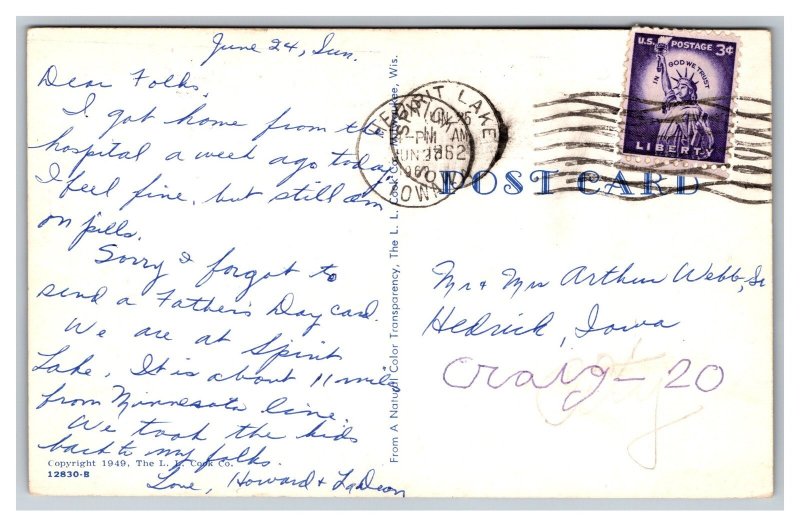 June 24, Sun.
Dear Folks,
I got home from the
hospital a week ago today.
I feel fine, but still am
on pills.
Sorry I forgot to
send a Father's Day card.
We are at Spirit
Lake. It is about 11 miles
from Minnesota line.
We took the kids
back to my folks.
Love, Howard + LaDeon
Copyright 1949, The L. L. Cook Co.
12830-B
From A Natural Color Transparency, The L. L. Cook Co., Milwaukee, Wis.
SPIRIT LAKE
PM AM
1962
IOWA
U.S. POSTAGE 3¢
IN GOD WE TRUST
LIBERTY
POST CARD
Mr + Mrs Arthur Webb, Sr
Hedrick, Iowa
Craig - 20